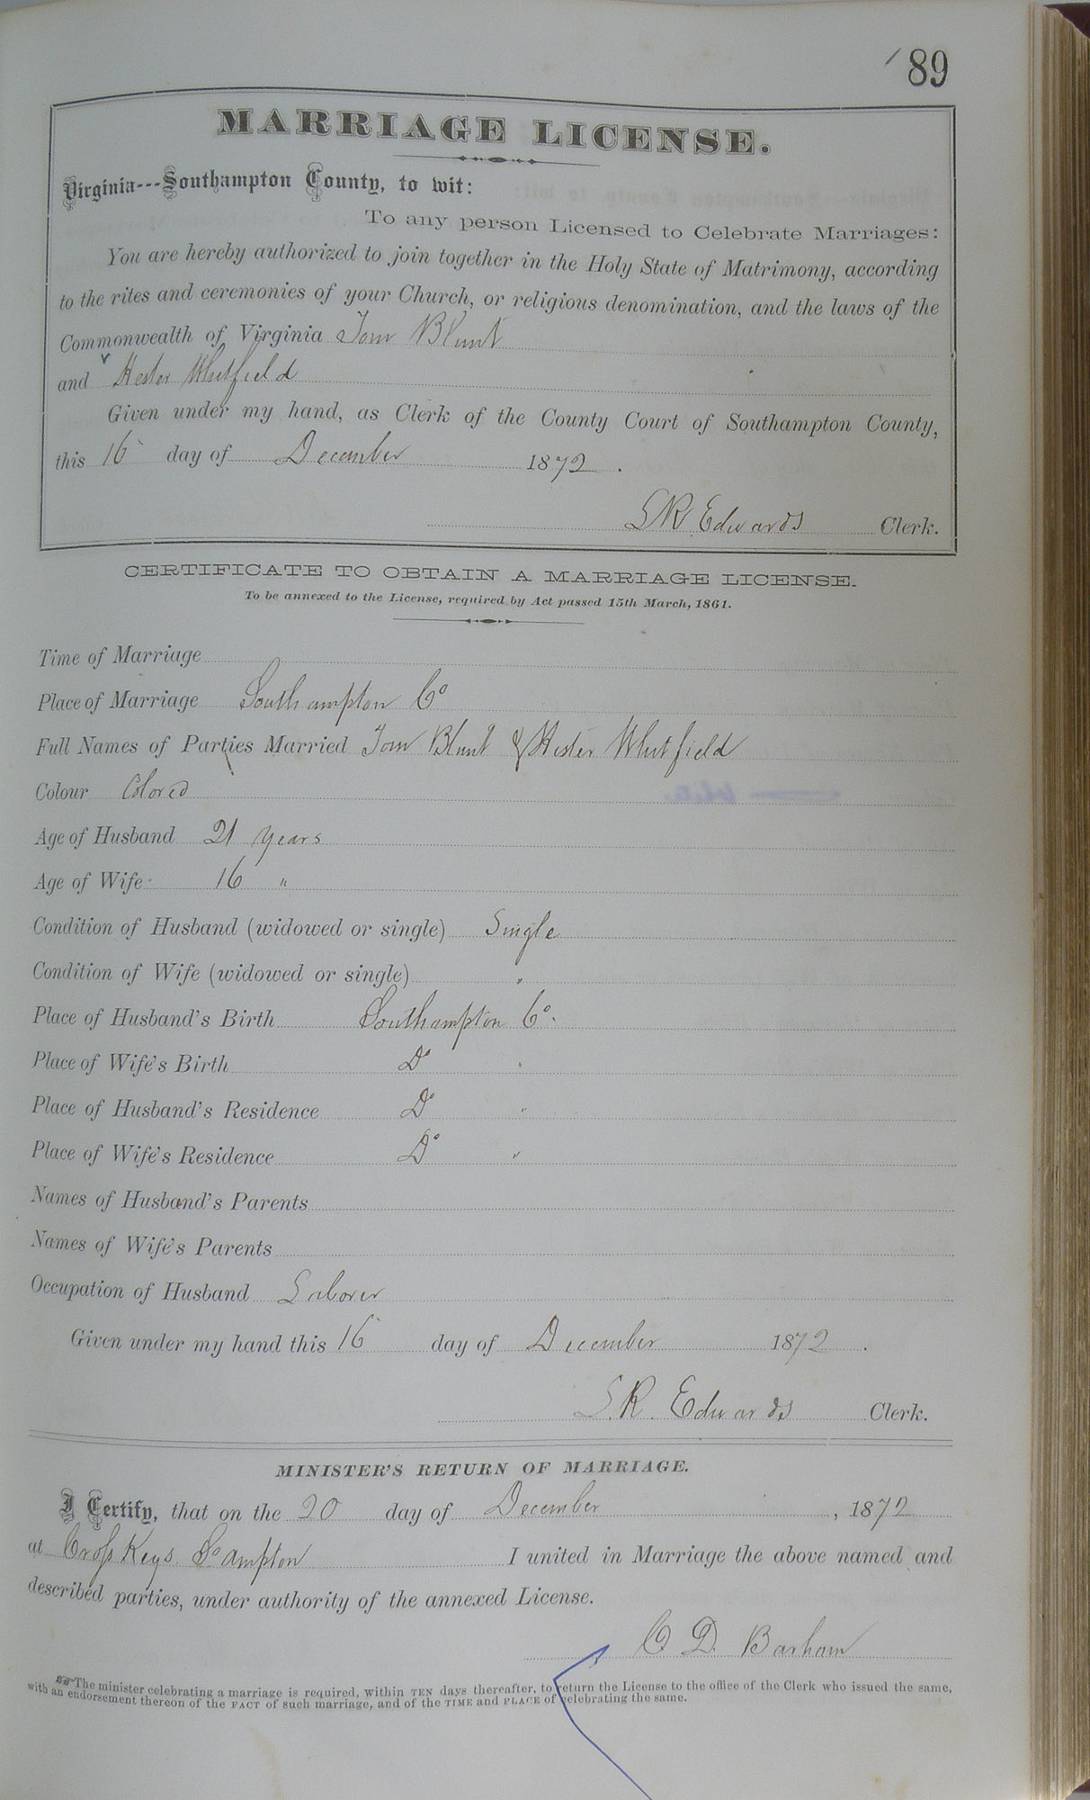 89
MARRIAGE LICENSE.
Virginia---Southampton County, to wit:
To any person Licensed to Celebrate Marriages:
You are hereby authorized to join together in the Holy State of Matrimony, according
to the rites and ceremonies of your Church, or religious denomination, and the laws of the
Commonwealth of Virginia Tom Blunt
and Hester Whitfield
Given under my hand, as Clerk of the County Court of Southampton County,
this 16 day of December 1872.
L R Edwards Clerk.
CERTIFICATE TO OBTAIN A MARRIAGE LICENSE.
To be annexed to the License, required by Act passed 15th March, 1861.
Time of Marriage
Place of Marriage Southampton Co
Full Names of Parties Married Tom Blunt & Hester Whitfield
Colour Colored
Age of Husband 21 years
Age of Wife 16 "
Condition of Husband (widowed or single) Single
Condition of Wife (widowed or single) "
Place of Husband's Birth Southampton Co.
Place of Wife's Birth Do "
Place of Husband's Residence Do "
Place of Wife's Residence Do "
Names of Husband's Parents
Names of Wife's Parents
Occupation of Husband Laborer
Given under my hand this 16 day of December 1872.
L. R. Edwards Clerk.
MINISTER'S RETURN OF MARRIAGE.
I Certify, that on the 20 day of December, 1872
at Cross Keys So ampton I united in Marriage the above named and
described parties, under authority of the annexed License.
C D. Barham
The minister celebrating a marriage is required, within TEN days thereafter, to return the License to the office of the Clerk who issued the same,
with an endorsement thereon of the FACT of such marriage, and of the TIME and PLACE of celebrating the same.